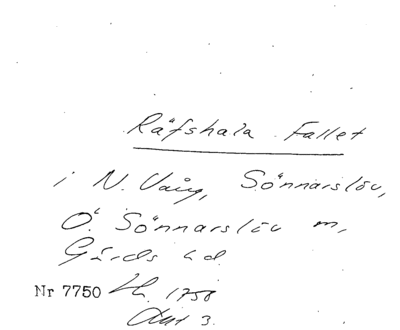 Räfshala Fallet
i N. Vång, Sönnarslöv,
Ö. Sönnarslöv m,
Gärds hd.
Nr 7750 1758
Akt 3.